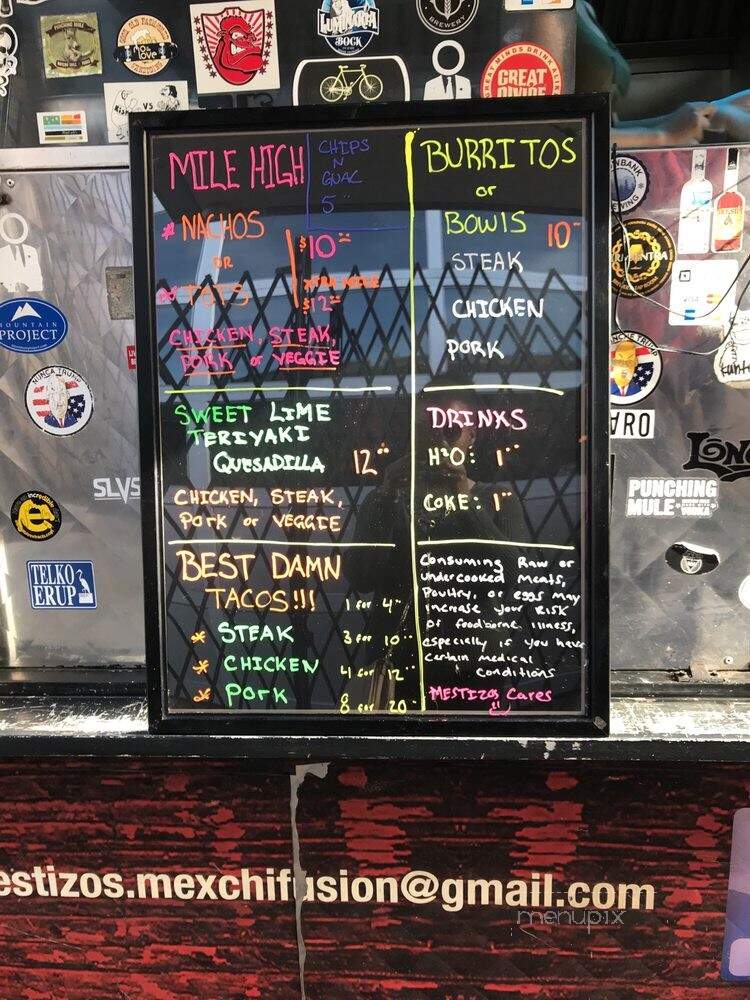 MILE HIGH
CHIPS
N
GUAC
5
* NACHOS
OR
* TOTS
$10
XTRA MILE
$12
CHICKEN, STEAK,
PORK or VEGGIE
SWEET LIME
TERIYAKI
QUESADILLA 12
CHICKEN, STEAK,
PORK or VEGGIE
BEST DAMN
TACOS!!!
* STEAK
* CHICKEN
* PORK
1 for 4
3 for 10
4 for 12
8 for 20
BURRITOS
or
BOWLS 10
STEAK
CHICKEN
PORK
DRINKS
H2O: 1
COKE: 1
Consuming Raw or
undercooked meats,
Poultry, or eggs may
increase your RISK
of foodborne illness,
especially if you have
certain medical
conditions
MESTIZOS Cares
estizos.mexchifusion@gmail.com
menupix
GREAT MINDS DRINK ALIKE
GREAT
DIVIDE
BOCK
BREWERY
VS
MOUNTAIN
PROJECT
NUNCA TRUMP
SLVS
incredible
TELKO
ERUP
PUNCHING
MULE
VISA
ARO
LONG